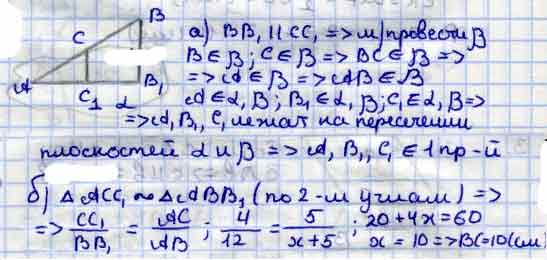 B
C
A
B₁
C₁ α
а) BB₁ || CC₁ => м/провести β
B ∈ β; C ∈ β => BC ∈ β =>
=> A ∈ β => AB ∈ β
A ∈ α, β; B₁ ∈ α, β; C₁ ∈ α, β =>
=> A, B₁, C₁ лежат на пересечении
плоскостей α и β => A, B₁, C₁ ∈ 1 пр-й
б) △ACC₁ ~ △ABB₁ (по 2-м углам) =>
=> CC₁/BB₁ = AC/AB ; 4/12 = 5/x+5 ; 20+4x=60
x = 10 => BC=10(см)